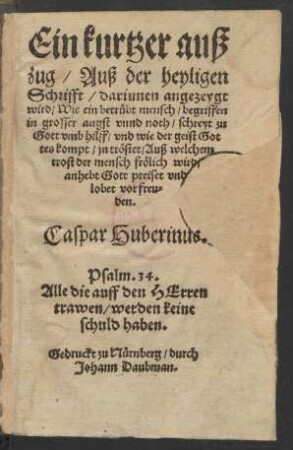 Ein kurtzer auß
zug / Auß der heyligen
Schrifft / darinnen angezeygt
wird / Wie ein betrübt mensch / begriffen
in grosser angst vnnd noth / schreyt zu
Gott vmb hilff / vnd wie der geist Got
tes kompt / jn tröstet / Auß welchem
trost der mensch frölich wird /
anhebt Gott preiset vnd
lobet vor freu-
den.
Caspar Huberinus.
Psalm. 34.
Alle die auff den HErren
trawen / werden keine
schuld haben.
Gedruckt zu Nürnberg / durch
Johann Daubman.